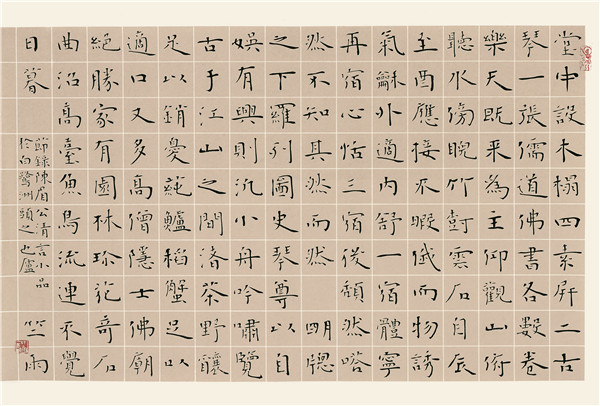 堂中設木榻四素屏二古
琴一張儒道佛書各數卷
樂天既来為主仰觀山俯
聽水傍睨竹樹雲石自辰
至酉應接不暇俄而物誘
氣龢外適內舒一宿體寧
再宿心恬三宿後頹然嗒
然不知其然而然 明牕
之下羅列圖史琴尊以自
娛有興則汎小舟吟嘯覽
古于江山之間渚茶野釀
足以銷憂蓴鱸稻蟹足以
適口又多高僧隱士佛廟
絕勝家有園林珍花奇石
曲沼高臺魚鳥流連不覺
日暮
節錄陳眉公清言小品
於白鷺洲頭之也廬
竺雨